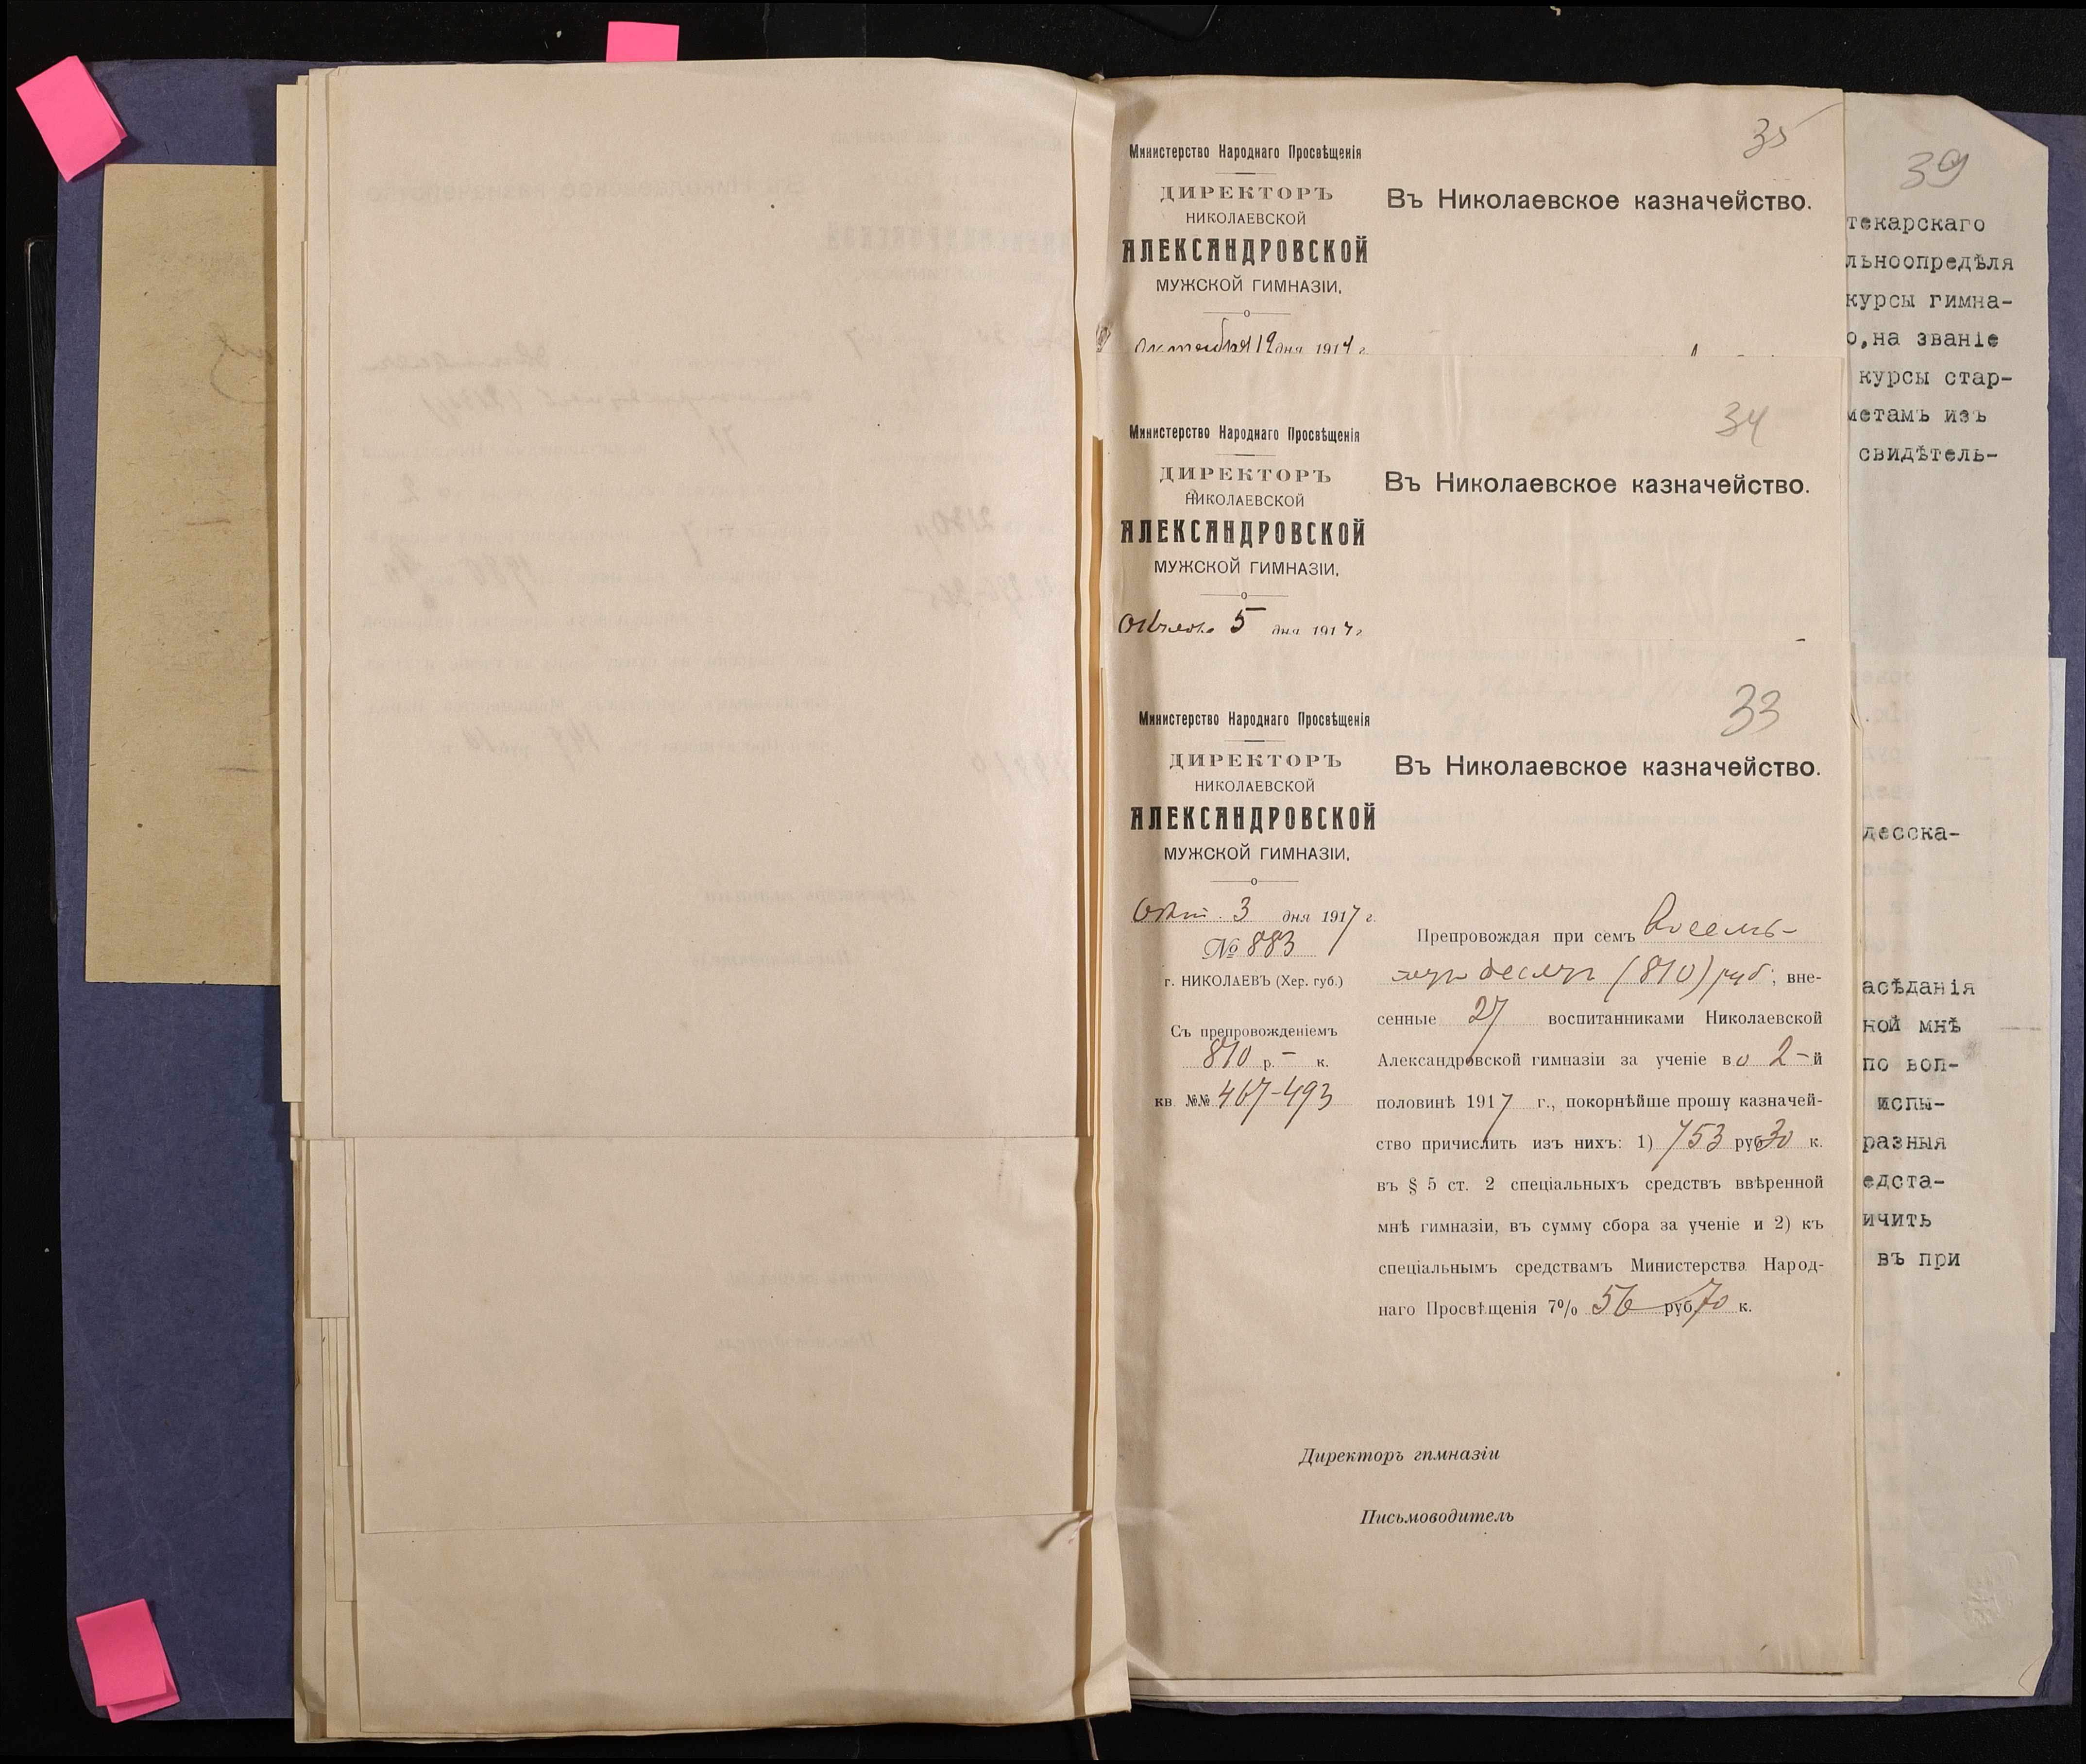 35
Министерство Народнаго Просвѣщенія
ДИРЕКТОРЪ
НИКОЛАЕВСКОЙ
АЛЕКСАНДРОВСКОЙ
МУЖСКОЙ ГИМНАЗІИ,
Октября 12 дня 1917 г.
Въ Николаевское казначейство.
34
Министерство Народнаго Просвѣщенія
ДИРЕКТОРЪ
НИКОЛАЕВСКОЙ
АЛЕКСАНДРОВСКОЙ
МУЖСКОЙ ГИМНАЗІИ,
5 дня 1917 г.
Въ Николаевское казначейство.
33
Министерство Народнаго Просвѣщенія
ДИРЕКТОРЪ
НИКОЛАЕВСКОЙ
АЛЕКСАНДРОВСКОЙ
МУЖСКОЙ ГИМНАЗІИ,
Окт. 3 дня 1917 г.
№ 883
г. НИКОЛАЕВЪ (Хер. губ.)
Съ препровожденіемъ
810 р. – к.
кв. №№ 467-493
Въ Николаевское казначейство.
Препровождая при семъ Восемь-
сотъ десять (810) руб., вне-
сенные 27 воспитанниками Николаевской
Александровской гимназіи за ученіе во 2-й
половинѣ 1917 г., покорнѣйше прошу казначей-
ство причислить изъ нихъ: 1) 753 руб 30 к.
въ § 5 ст. 2 спеціальныхъ средствъ ввѣренной
мнѣ гимназіи, въ сумму сбора за ученіе и 2) къ
спеціальнымъ средствамъ Министерства Народ-
наго Просвѣщенія 7% 56 руб. 70 к.
Директоръ гимназіи
Письмоводитель
39
текарскаго
льноопредѣля
курсы гимна-
о,на званіе
курсы стар-
метамъ изъ
свидѣтель-
десска-
асѣданія
ной мнѣ
по воп-
испы-
разныя
едста-
ичить
въ при